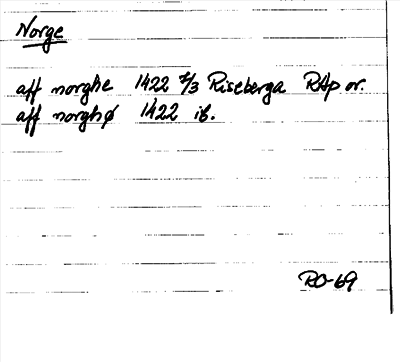 Norge
aff norghe 1422 7/3 Riseberga RAp or.
aff norghø 1422 ib.
RO-69